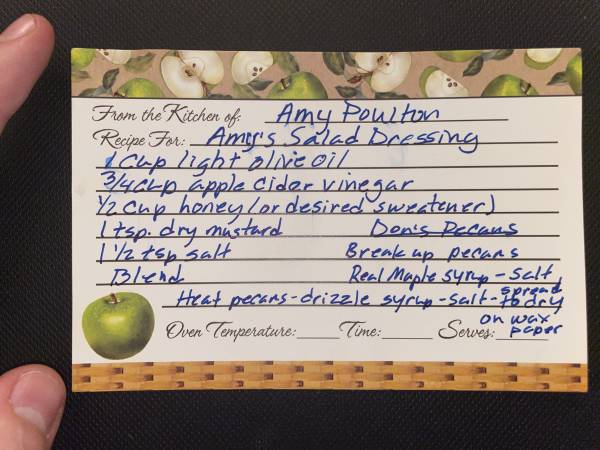 From the Kitchen of: Amy Poulton
Recipe For: Amy's Salad Dressing
1 cup light olive oil
3/4 cup apple cider vinegar
1/2 cup honey (or desired sweetener)
1 tsp. dry mustard Don's Pecans
1 1/2 tsp salt Break up pecans
Blend Real Maple syrup - salt
Heat pecans - drizzle syrup - salt - spread to dry
on wax paper
Oven Temperature: Time: Serves: